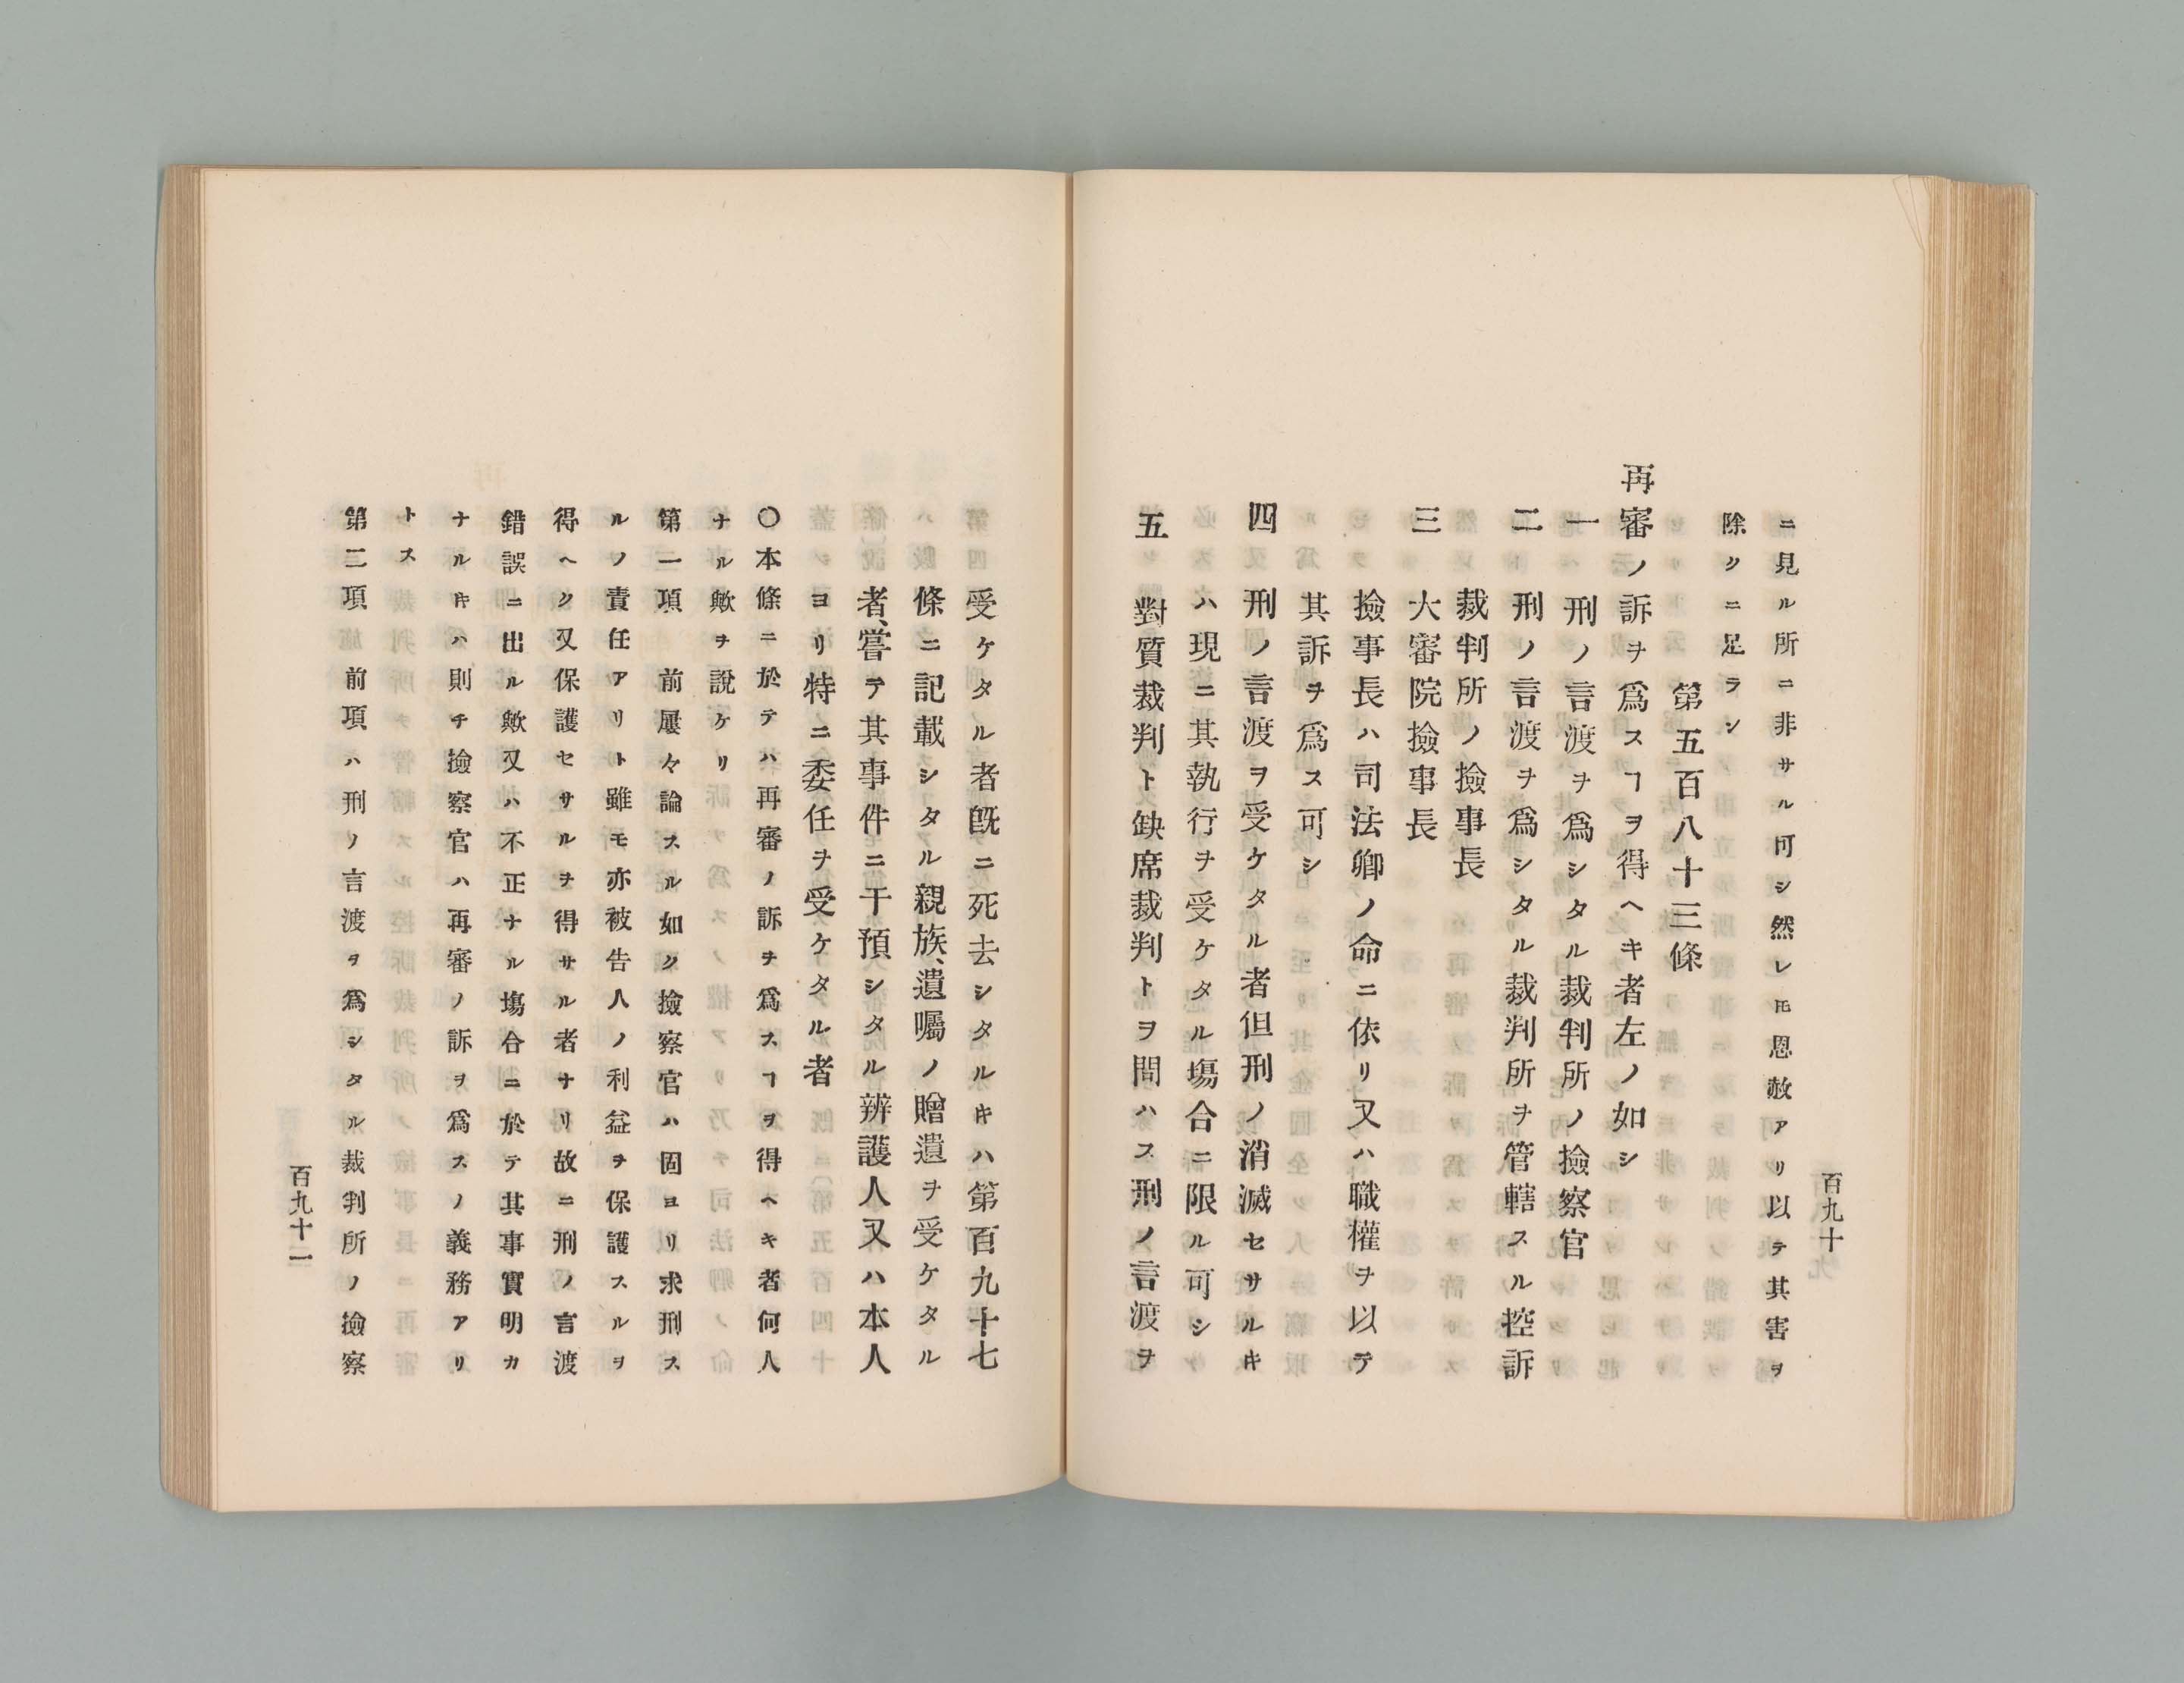 ニ見ル所ニ非サル可シ然レ𪜈恩赦アリ以テ其害ヲ
除クニ足ラン
第五百八十三條
再審ノ訴ヲ爲スヿヲ得ヘキ者左ノ如シ
一 刑ノ言渡ヲ爲シタル裁判所ノ撿察官
二 刑ノ言渡ヲ爲シタル裁判所ヲ管轄スル控訴
裁判所ノ撿事長
三 大審院撿事長
撿事長ハ司法卿ノ命ニ依リ又ハ職權ヲ以テ
其訴ヲ爲ス可シ
四 刑ノ言渡ヲ受ケタル者但刑ノ消滅セサルキ
ハ現ニ其執行ヲ受ケタル塲合ニ限ル可シ
五 對質裁判ト缺席裁判トヲ問ハス刑ノ言渡ヲ
百九十
受ケタル者旣ニ死去シタルキハ第百九十七
條ニ記載シタル親族、遺囑ノ贈遺ヲ受ケタル
者、嘗テ其事件ニ干預シタル辨護人又ハ本人
ヨリ特ニ委任ヲ受ケタル者
〇本條ニ於テハ再審ノ訴ヲ爲スヿヲ得ヘキ者何人
ナル歟ヲ說ケリ
第一項 前屢々論スル如ク撿察官ハ固ヨリ求刑ス
ルノ責任アリト雖モ亦被告人ノ利益ヲ保護スルヲ
得ヘク又保護セサルヲ得サル者ナリ故ニ刑ノ言渡
錯誤ニ出ル歟又ハ不正ナル塲合ニ於テ其事實明カ
ナルキハ則チ撿察官ハ再審ノ訴ヲ爲スノ義務アリ
トス
第二項 前項ハ刑ノ言渡ヲ爲シタル裁判所ノ撿察
百九十一